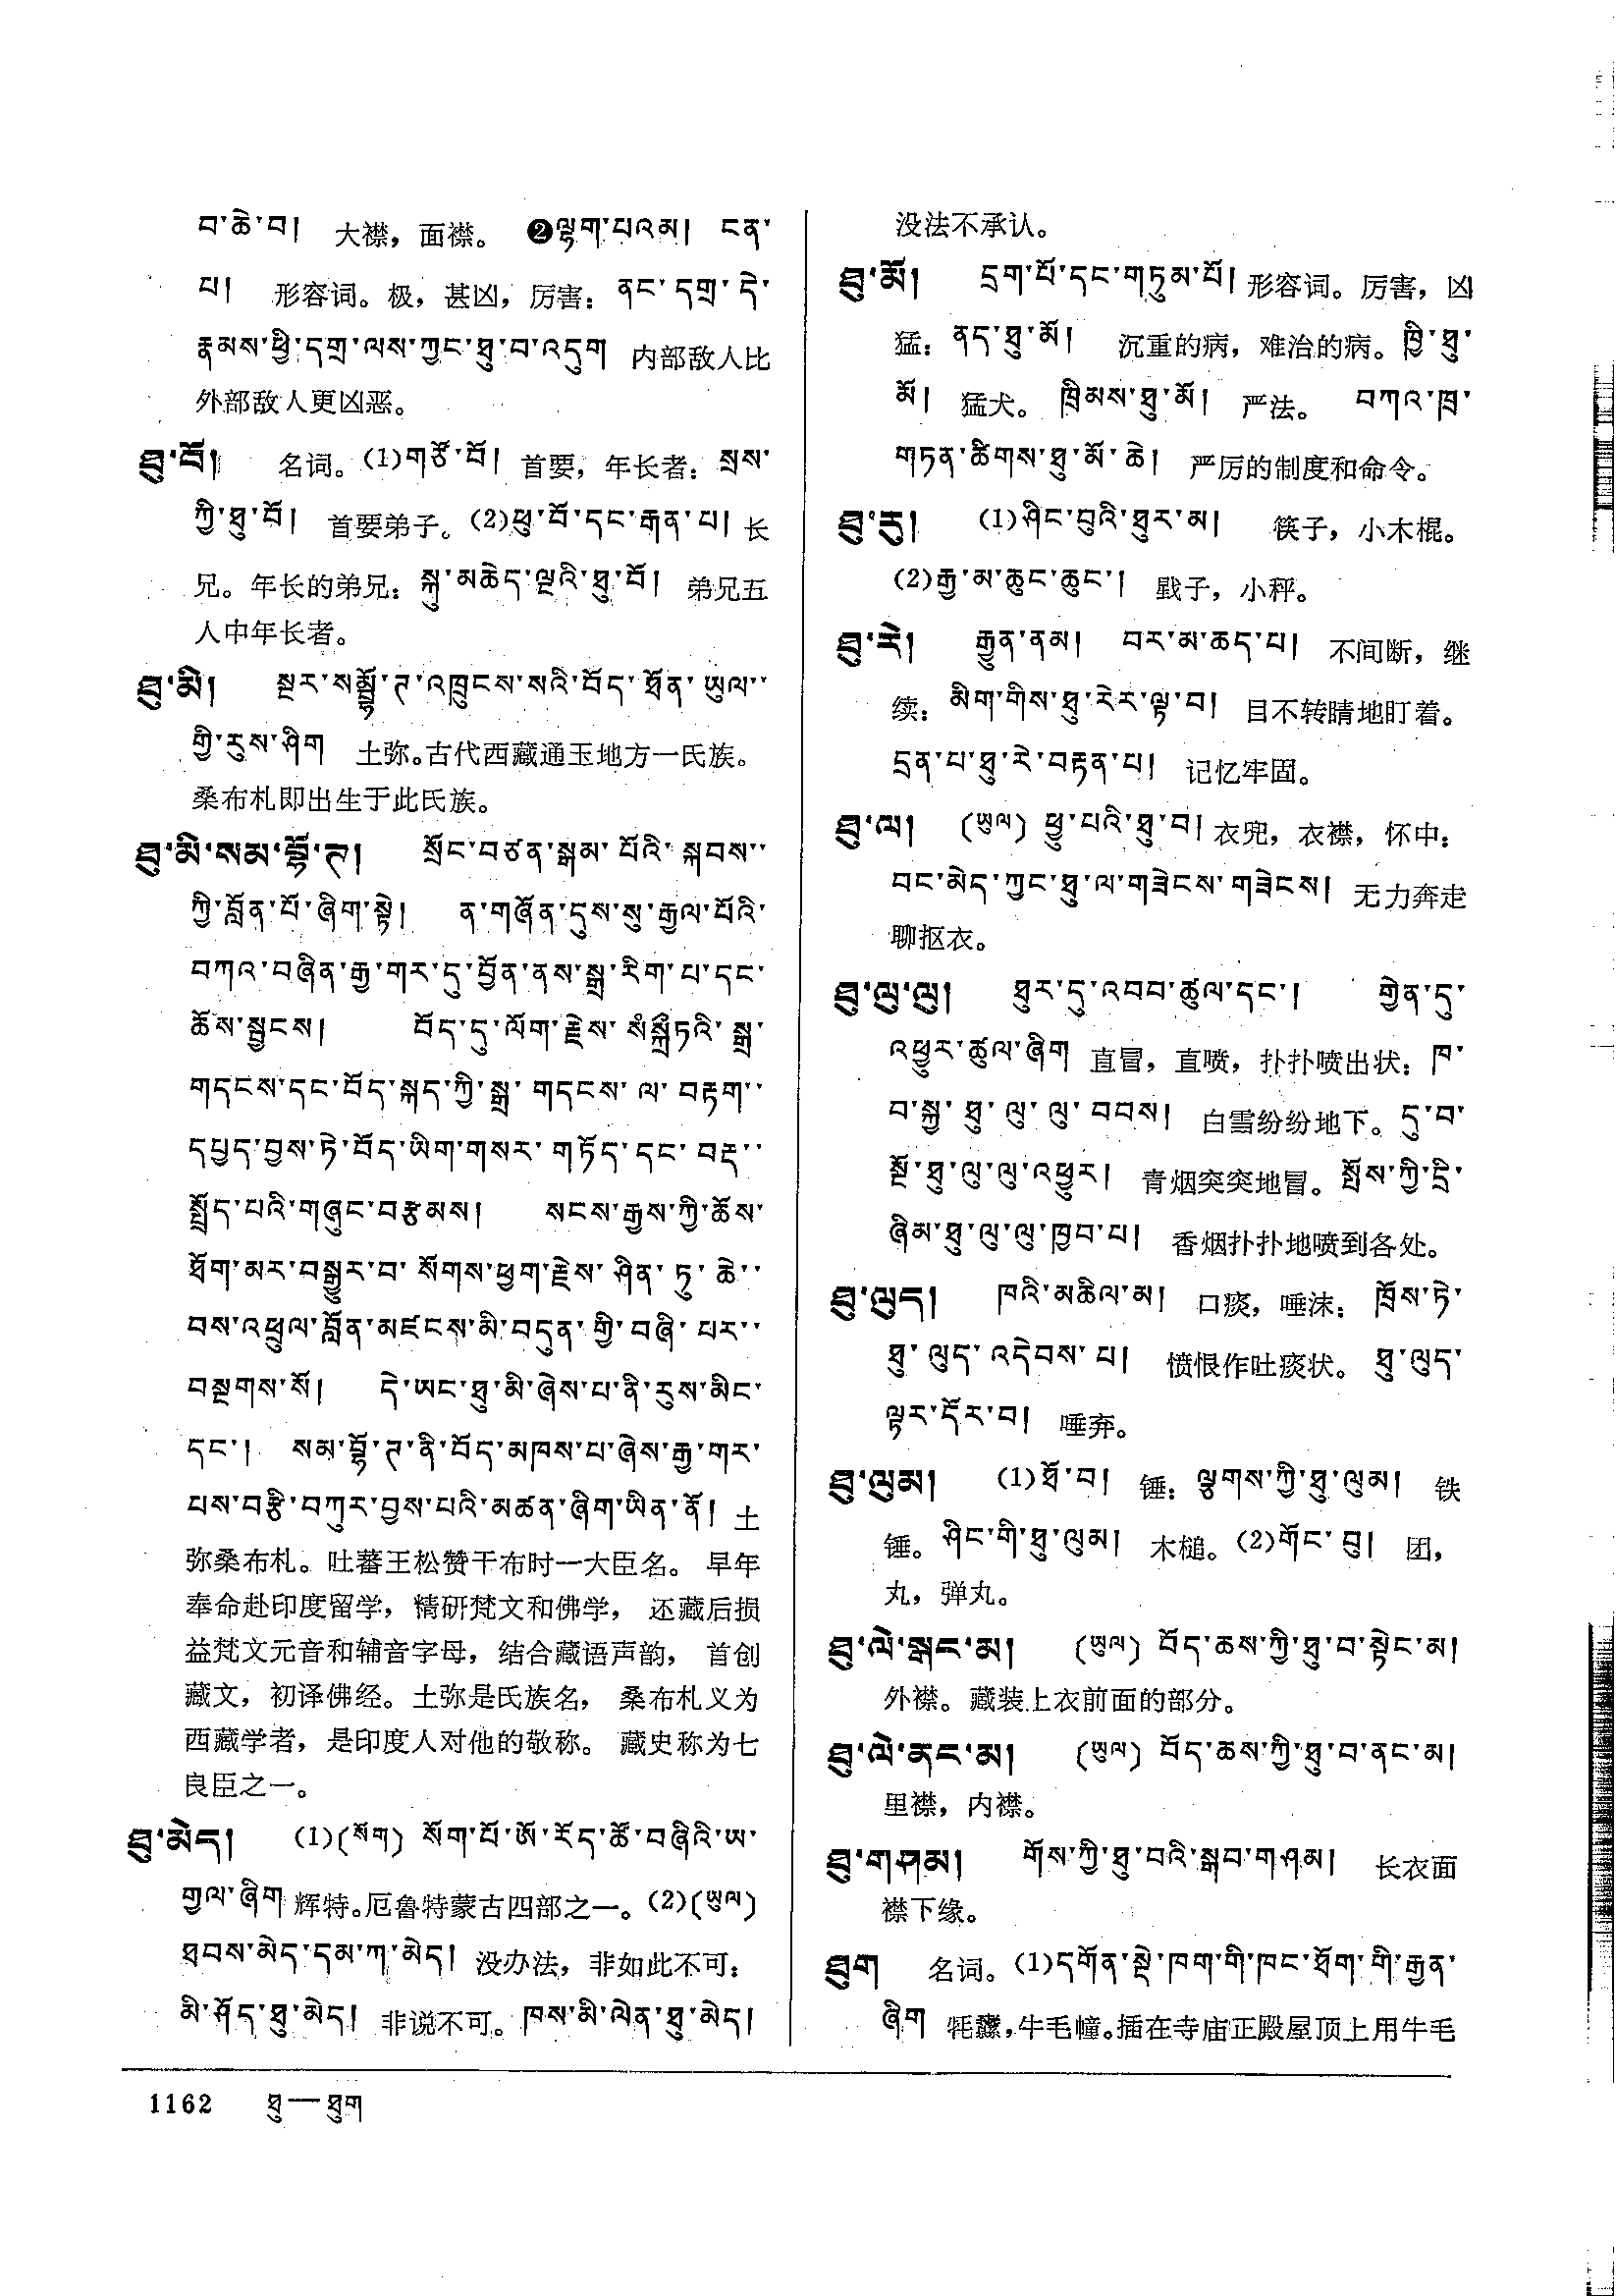 བ་ཆེ་བ། 大襟，面襟。 ❷ལྷག་པའམ། ངན་
པ། 形容词。极，甚凶，厉害：ནང་དགྲ་དེ་
རྣམས་ཕྱི་དགྲ་ལས་ཀྱང་ཐུ་བ་འདུག 内部敌人比
外部敌人更凶恶。
ཐུ་བོ། 名词。(1)གཙོ་བོ། 首要，年长者：སྲས་
ཀྱི་ཐུ་བོ། 首要弟子。(2)ཕུ་བོ་དང་རྒན་པ། 长
兄。年长的弟兄：སྐུ་མཆེད་ལྔའི་ཐུ་བོ། 弟兄五
人中年长者。
ཐུ་མི། སྔར་སམྦྷོ་ཊ་འཁྲུངས་སའི་བོད་ཐོན་ཡུལ་་
གྱི་རུས་ཤིག 土弥。古代西藏通玉地方一氏族。
桑布札即出生于此氏族。
ཐུ་མི་སམ་བྷོ་ཊ། སྲོང་བཙན་སྒམ་པོའི་སྐབས་་
ཀྱི་བློན་པོ་ཞིག་སྟེ། ན་གཞོན་དུས་སུ་རྒྱལ་པོའི་
བཀའ་བཞིན་རྒྱ་གར་དུ་བྱོན་ནས་སྒྲ་རིག་པ་དང་
ཆོས་སྦྱངས། བོད་དུ་ལོག་རྗེས་སཾསྐྲྀཏའི་སྒྲ་
གདངས་དང་བོད་སྐད་ཀྱི་སྒྲ་གདངས་ལ་བརྟག་་
དཔྱད་བྱས་ཏེ་བོད་ཡིག་གསར་གཏོད་དང་བརྡ་་
སྤྲོད་པའི་གཞུང་བརྩམས། སངས་རྒྱས་ཀྱི་ཆོས་
ཐོག་མར་བསྒྱུར་བ་སོགས་ཕྱག་རྗེས་ཤིན་ཏུ་ཆེ་་
བས་འཕྲུལ་བློན་མཛངས་མི་བདུན་གྱི་བཞི་པར་་
བསྔགས་སོ། དེ་ཡང་ཐུ་མི་ཞེས་པ་ནི་རུས་མིང་
དང་། སམ་བྷོ་ཊ་ནི་བོད་མཁས་པ་ཞེས་རྒྱ་གར་
པས་བརྩི་བཀུར་བྱས་པའི་མཚན་ཞིག་ཡིན་ནོ། 土
弥桑布札。吐蕃王松赞干布时一大臣名。 早年
奉命赴印度留学，精研梵文和佛学， 还藏后损
益梵文元音和辅音字母，结合藏语声韵， 首创
藏文，初译佛经。土弥是氏族名， 桑布札义为
西藏学者，是印度人对他的敬称。 藏史称为七
良臣之一。
ཐུ་མེད། (1)(སོག) སོག་པོ་ཨོ་རོད་ཚོ་བཞིའི་ཡ་
གྱལ་ཞིག 辉特。厄鲁特蒙古四部之一。(2)(ཡུལ)
ཐབས་མེད་དམ་ཀ་མེད། 没办法，非如此不可：
མི་ཤོད་ཐུ་མེད། 非说不可。ཁས་མི་ལེན་ཐུ་མེད།
没法不承认。
ཐུ་མོ། དྲག་པོ་དང་གཏུམ་པོ། 形容词。厉害，凶
猛：ནད་ཐུ་མོ། 沉重的病，难治的病。ཁྱི་ཐུ་
མོ། 猛犬。 ཁྲིམས་ཐུ་མོ། 严法。 བཀའ་ཁྲ་
གཏན་ཚིགས་ཐུ་མོ་ཆེ། 严厉的制度和命令。
ཐུ་རུ། (1)ཤིང་བུའི་ཐུར་མ། 筷子，小木棍。
(2)རྒྱ་མ་ཆུང་ཆུང་། 戥子，小秤。
ཐུ་རེ། རྒྱུན་ནམ། བར་མ་ཆད་པ། 不间断，继
续：མིག་གིས་ཐུ་རེར་ལྟ་བ། 目不转睛地盯着。
དྲན་པ་ཐུ་རེ་བརྟན་པ། 记忆牢固。
ཐུ་ལ། (ཡུལ) ཕྱུ་པའི་ཐུ་བ། 衣兜，衣襟，怀中：
བང་མེད་ཀྱང་ཐུ་ལ་གཟེངས་གཟེངས། 无力奔走
聊抠衣。
ཐུ་ལུ་ལུ། ཐུར་དུ་འབབ་ཚུལ་དང་། གྱེན་དུ་
འཕྱུར་ཚུལ་ཞིག 直冒，直喷，扑扑喷出状：ཁ་
བ་སྐྱ་ཐུ་ལུ་ལུ་བབས། 白雪纷纷地下。དུ་བ་
སྔོ་ཐུ་ལུ་ལུ་འཕྱུར། 青烟突突地冒。སྤོས་ཀྱི་དྲི་
ཞིམ་ཐུ་ལུ་ལུ་ཁྱབ་པ། 香烟扑扑地喷到各处。
ཐུ་ལུད། ཁའི་མཆིལ་མ། 口痰，唾沫：ཁྲོས་ཏེ་
ཐུ་ལུད་འདེབས་པ། 愤恨作吐痰状。 ཐུ་ལུད་
ལྟར་དོར་བ། 唾弃。
ཐུ་ལུམ། (1)ཐོ་བ། 锤：ལྕགས་ཀྱི་ཐུ་ལུམ། 铁
锤。ཤིང་གི་ཐུ་ལུམ། 木槌。(2)གོང་བུ། 团，
丸，弹丸。
ཐུ་ལེ་སྒང་མ། (ཡུལ) བོད་ཆས་ཀྱི་ཐུ་བ་སྟེང་མ།
外襟。藏装上衣前面的部分。
ཐུ་ལེ་ནང་མ། (ཡུལ) བོད་ཆས་ཀྱི་ཐུ་བ་ནང་མ།
里襟，内襟。
ཐུ་གཤམ། གོས་ཀྱི་ཐུ་བའི་སྒབ་གཤམ། 长衣面
襟下缘。
ཐུག 名词。(1)དགོན་སྡེ་ཁག་གི་ཁང་ཐོག་གི་རྒྱན་
ཞིག 牦纛，牛毛幢。插在寺庙正殿屋顶上用牛毛
1162 ཐུ—ཐུག